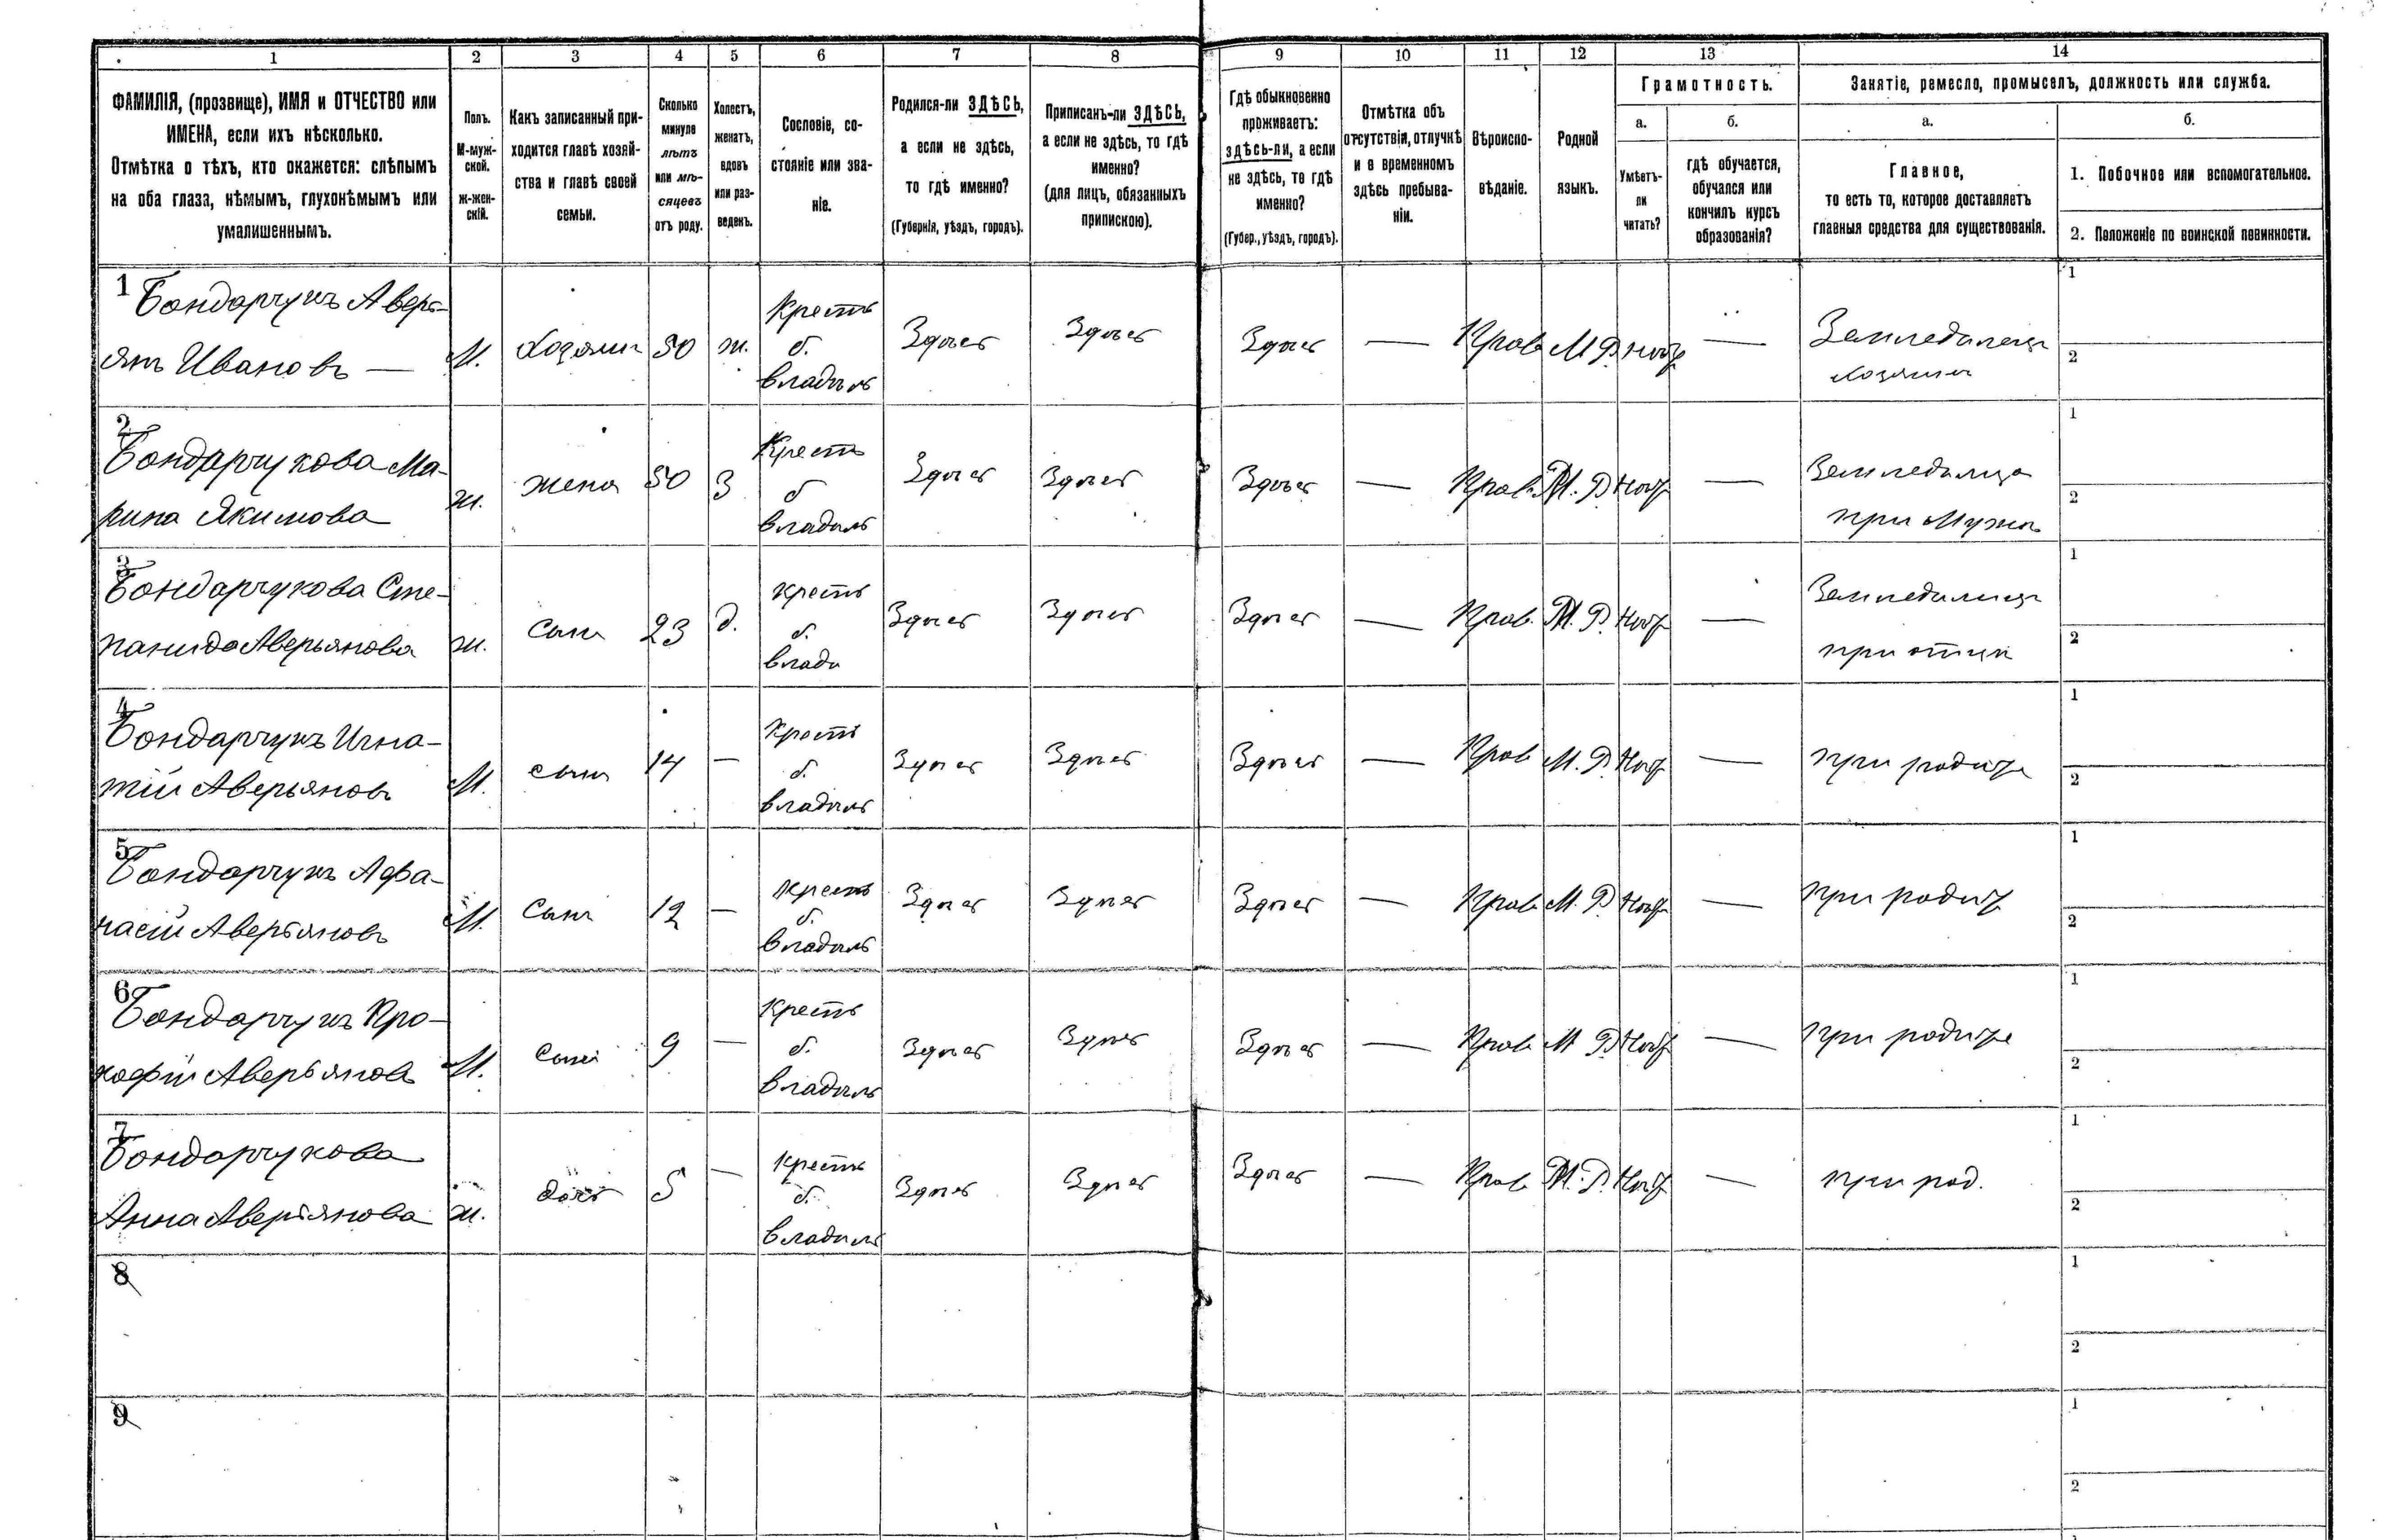 1 2 3 4 5 6 7 8 9 10 11 12 13 14
ФАМИЛІЯ, (прозвище), ИМЯ и ОТЧЕСТВО или
ИМЕНА, если ихъ нѣсколько.
Отмѣтка о тѣхъ, кто окажется: слѣпымъ
на оба глаза, нѣмымъ, глухонѣмымъ или
умалишеннымъ.
Полъ.
М-муж-
ской.
ж-жен-
скій.
Какъ записанный при-
ходится главѣ хозяй-
ства и главѣ своей
семьи.
Сколько
минуло
лѣтъ
или мѣ-
сяцевъ
отъ роду.
Холостъ,
женатъ,
вдовъ
или раз-
веденъ.
Сословіе, со-
стояніе или зва-
ніе.
Родился-ли ЗДѢСЬ,
а если не здѣсь,
то гдѣ именно?
(Губернія, уѣздъ, городъ).
Приписанъ-ли ЗДѢСЬ,
а если не здѣсь, то гдѣ
именно?
(для лицъ, обязанныхъ
припискою).
Гдѣ обыкновенно
проживаетъ:
здѣсь-ли, а если
не здѣсь, то гдѣ
именно?
(Губер., уѣздъ, городъ).
Отмѣтка объ
отсутствіи, отлучкѣ
и о временномъ
здѣсь пребыва-
ніи.
Вѣроиспо-
вѣданіе.
Родной
языкъ.
Грамотность.
а.
Умѣетъ-
ли
читать?
б.
гдѣ обучается,
обучался или
кончилъ курсъ
образованія?
Занятіе, ремесло, промыселъ, должность или служба.
а.
Главное,
то есть то, которое доставляетъ
главныя средства для существованія.
б.
1. Побочное или вспомогательное.
2. Положеніе по воинской повинности.
1 Бондарчукъ Аверь-
янъ Ивановъ —
М.
Хозяинъ
50
ж.
Крестъ
б.
владѣль
Здѣсь
Здѣсь
Здѣсь
—
Прав
М Р
—
Земледѣлецъ
хозяинъ
1
2
2 Бондарчукова Ма-
рина Якимова
ж.
жена
50
З
Крестъ
б
владѣль
Здѣсь
Здѣсь
Здѣсь
—
Прав
М. Р
—
Земледѣлица
при Мужѣ
1
2
3 Бондарчукова Сте-
панида Аверьянова
ж.
Сынъ
23
д.
крестъ
б.
владѣ
Здѣсь
Здѣсь
Здѣсь
—
Прав.
М. Р.
—
Земледѣлица
при отцѣ
1
2
4 Бондарчукъ Игна-
тій Аверьяновъ
М.
сынъ
14
—
Крестъ
б.
владѣль
Здѣсь
Здѣсь
Здѣсь
—
Прав
М. Р.
—
при родит
1
2
5 Бондарчукъ Афа-
насій Аверьяновъ
М.
Сынъ
12
—
Крестъ
б.
владѣль
Здѣсь
Здѣсь
Здѣсь
—
Прав
М. Р.
—
при родит
1
2
6 Бондарчукъ Про-
кофій Аверьяновъ
М.
Сынъ
9
—
Крестъ
б.
владѣль
Здѣсь
Здѣсь
Здѣсь
—
Прав
М Р
—
при родит
1
2
7 Бондарчукова
Анна Аверьянова
ж.
дочь
5
—
Крестъ
б.
владѣль
Здѣсь
Здѣсь
Здѣсь
—
Прав
М. Р.
—
при род.
1
2
8
1
2
9
1
2